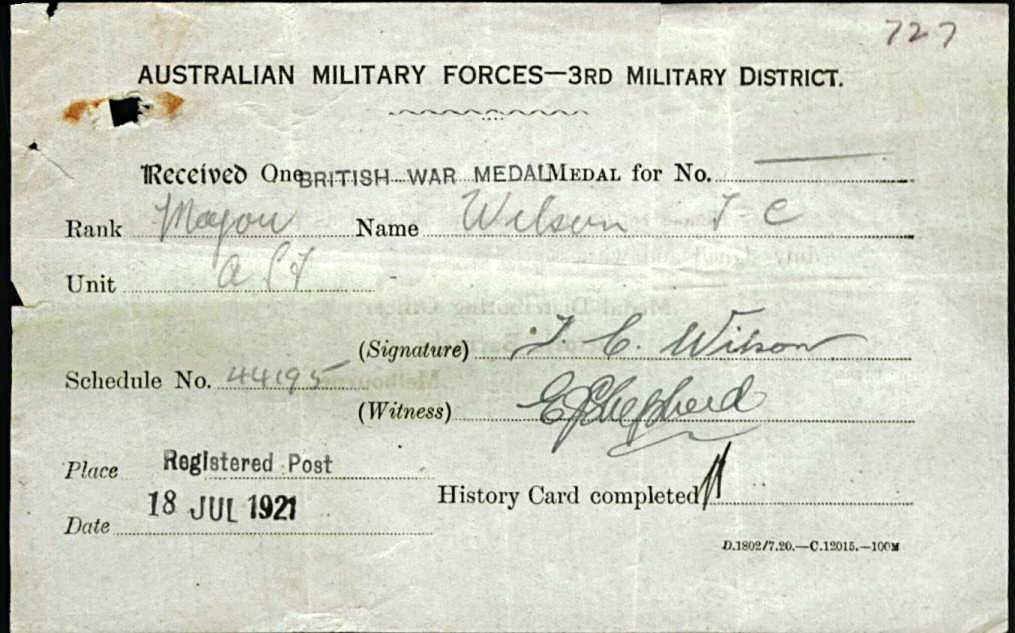 727
AUSTRALIAN MILITARY FORCES—3RD MILITARY DISTRICT.
Received One BRITISH WAR MEDAL MEDAL for No.
Rank Major Name Wilson T C
Unit
(Signature) T. C. Wilson
Schedule No. 44195
(Witness) E Shepherd
Place Registered Post
History Card completed
Date 18 JUL 1921
D.1802/7.20.—C.12015.—100M